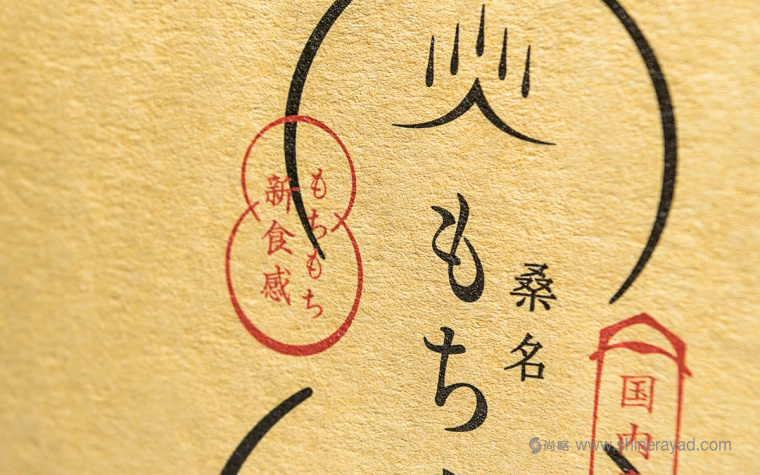 桑名
もち
もちもち
新食感
国内
尚略 www.shinerayad.com